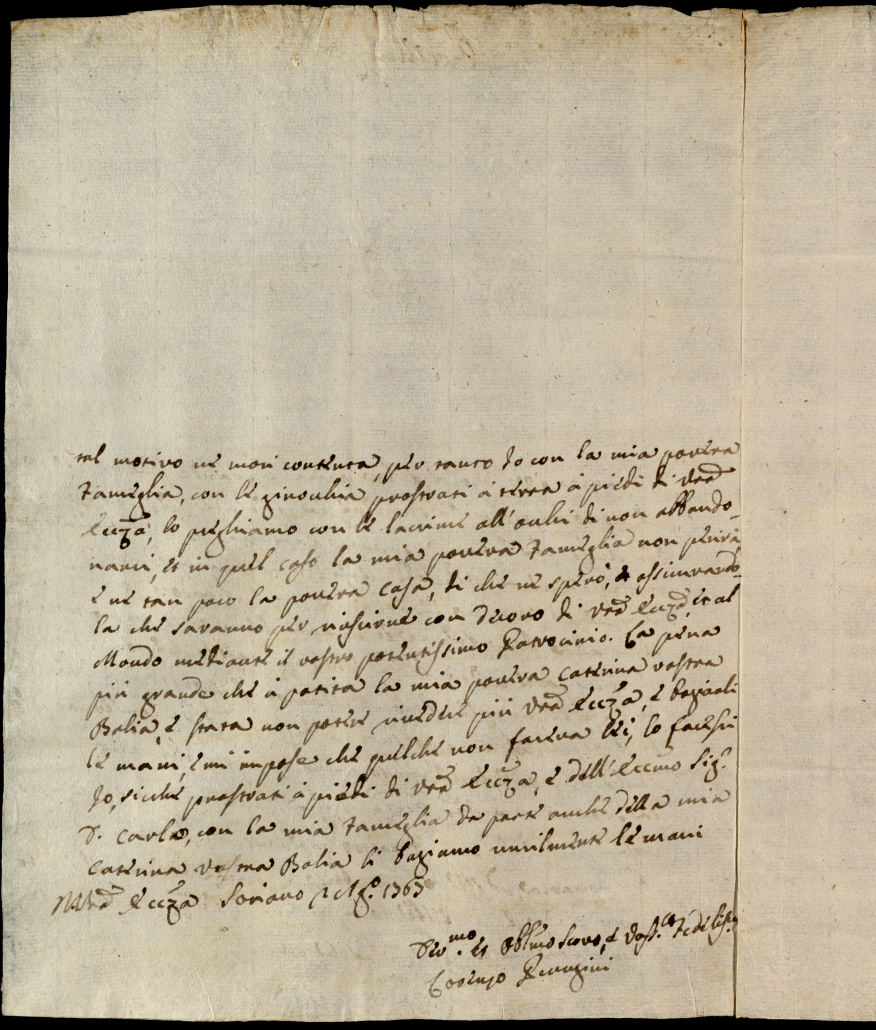 tal motivo ne morì contenta, per tanto Io con la mia povera
Fameglia, con le ginochia prostrati à terra à piedi di Vr̃a
Eccz̃a, lo preghiamo con le lacrime all'ochi di non abbando_
narci, et in quel caso la mia povera Fameglia non perirà,
e ne tan poco la povera Casa, di che ne sperò, et assicurando_
la che saranno per riuscirne con decoro di Vr̃a Eccz̃a, et al
Mondo mediante il vostro potentissimo Patrocinio. La pena
più grande che à patita la mia povera Caterina vostra
Balia, è stata non potere rivedere più Vr̃a Eccz̃a, e bagiarli
le mani, e mi impose che quelche non faceva lei, lo facessi
Io, sicche prostrati à piedi di Vr̃a Eccz̃a, e dell'Eccmo Sig.r
D. Carlo, con la mia Fameglia da parte anche della mia
Caterina vostra Balia li bagiamo umilmente le mani
Vr̃a Eccz̃a Soriano 2 Ag.o 1767
Dev.mo et Obblmo Servo, e Vass.llo Fedeliss.o
Lorenzo Perugini